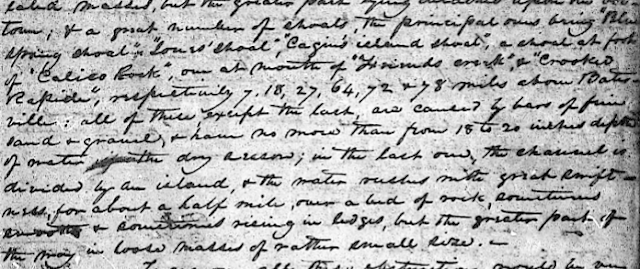 masses, but the greater part lying detached upon the
town; & a great number of shoals, the principal ones being
spring shoal", "Jones' shoal", "Cagin's island shoal", a shoal at foot
of "Calico Rock", one at mouth of "Hriends creek", & "Crooked
Rapids", respectively 7, 18, 27, 64, 72 & 78 miles above Bates
ville: all of these except the last, are caused by bars of fine
sand & gravel, & have no more than from 18 to 20 inches depth
of water in the dry season; in the last one, the channel is
divided by an island, & the water rushes with great swift-
ness, for about a half mile, over a bed of rock, sometimes
smooth & sometimes rising in ledges, but the greater part of
the way in loose masses of rather small size. —
all these obstructions would be